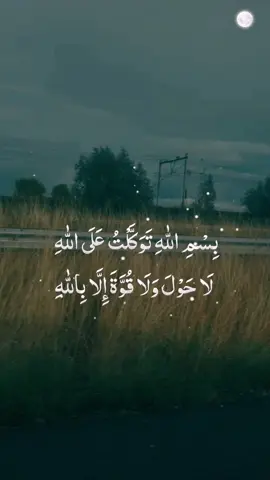 بِسْمِ اللهِ تَوَكَّلْتُ عَلَى اللهِ
لَا حَوْلَ وَلَا قُوَّةَ إِلَّا بِاللهِ